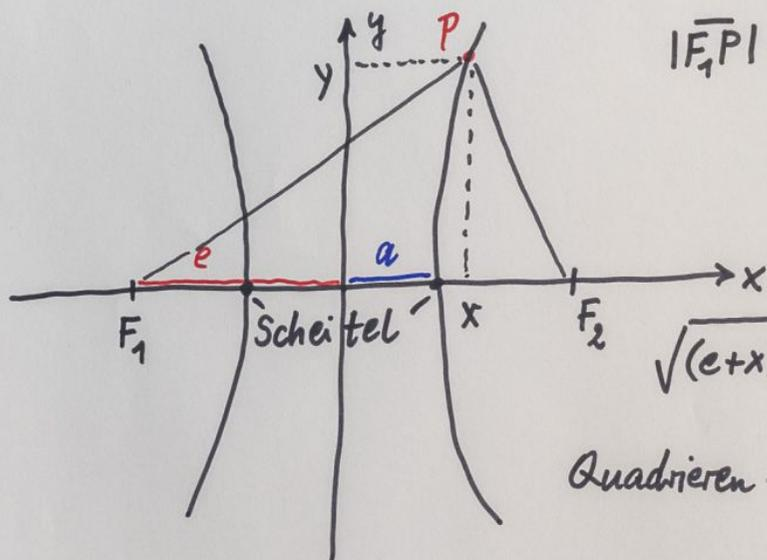 y
P
|F₁P|
y
e
a
x
F₁
Scheitel
x
F₂
√(e+x
Quadrieren